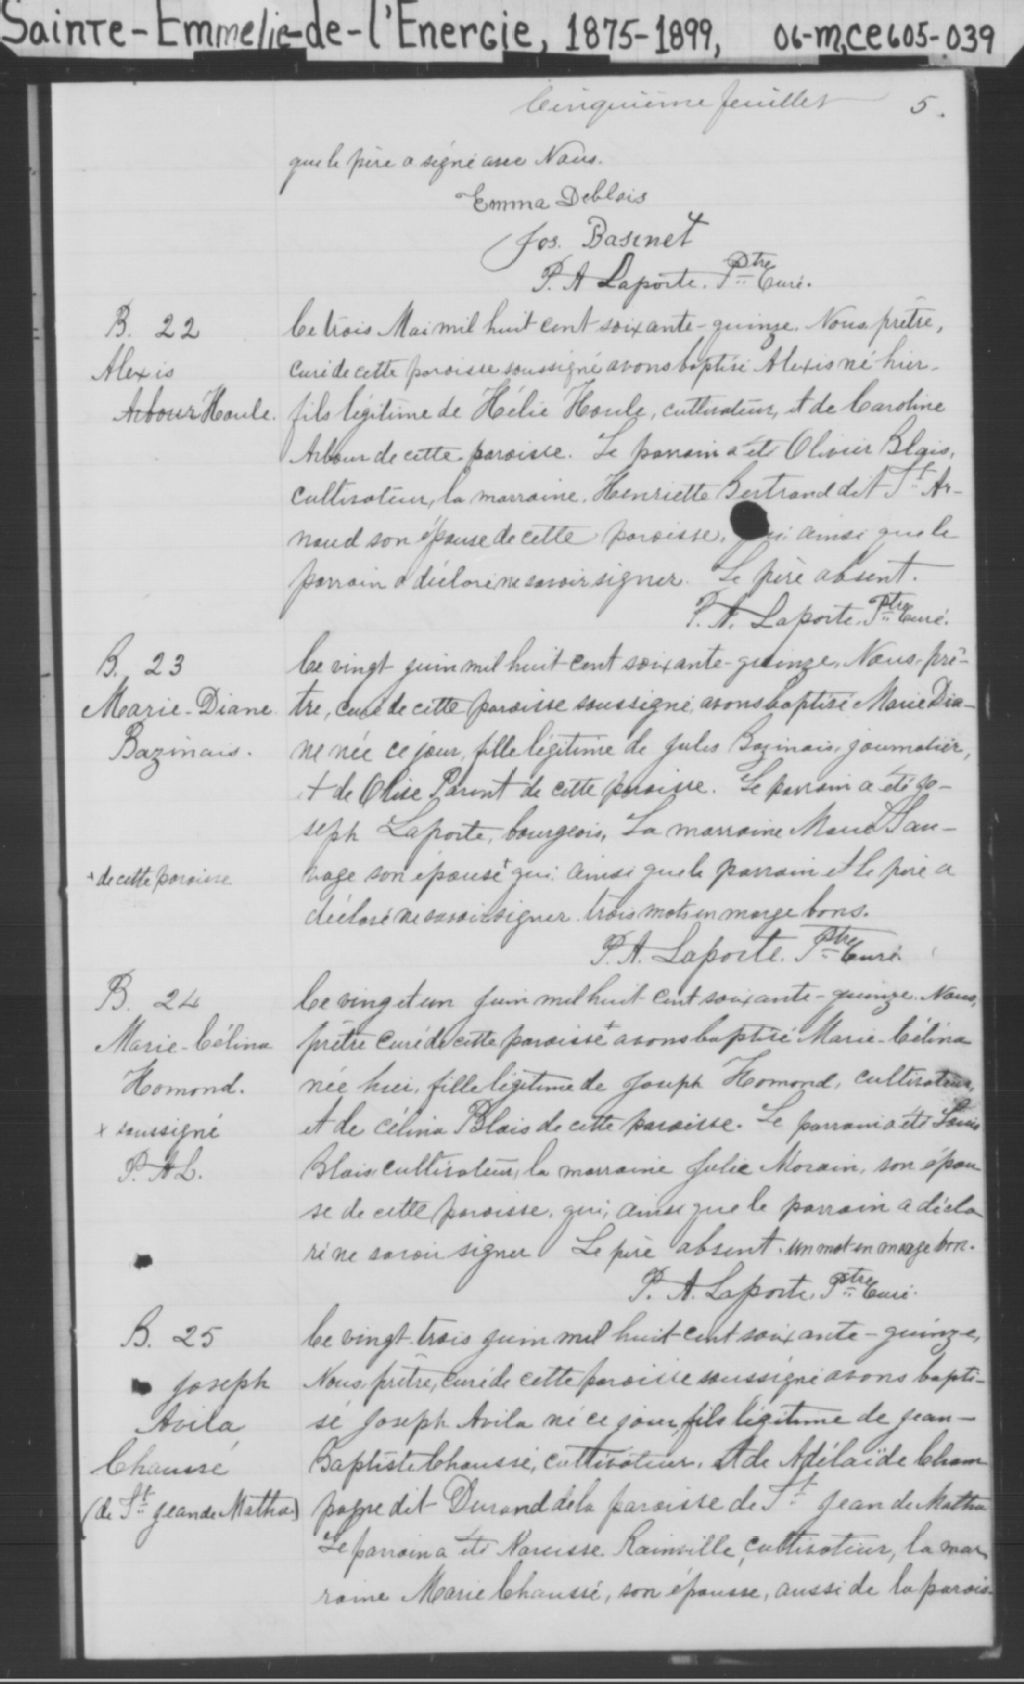 Sainte-Emmelie-de-l'Energie, 1875-1899, 06-M,CE605-039
Cinquième feuillet 5.
que le père a signé avec Nous.
Emma Deblois
Jos. Basinet
P. A Laporte. Ptre Curé.
B. 22
Alexis
Arbour Houle.
Ce trois Mai mil huit cent soixante-quinze. Nous prêtre,
curé de cette paroisse soussigné avons baptisé Alexis né hier
fils légitime de Hélie Houle, cultivateur, et de Caroline
Arbour de cette paroisse. Le parrain a été Olivier Blais,
cultivateur, la marraine, Henriette Bertrand dit St Ar-
naud son épouse de cette paroisse, qui ainsi que le
parrain a déclaré ne savoir signer. Le père absent.
P. A. Laporte. Ptre Curé.
B. 23
Marie-Diane
Bazinais.
+ de cette paroisse
Ce vingt juin mil huit cent soixante-quinze, Nous, prê-
tre, curé de cette paroisse soussigné, avons baptisé Marie Dia-
ne née ce jour, fille légitime de Jules Bazinais, journalier,
et de Olise Parent de cette paroisse. Le parrain a été Jo-
seph Laporte, bourgeois, La marraine Marie Sau-
vage son épouse + qui ainsi que le parrain et le père a
déclaré ne savoir signer. trois mots en marge bons.
P. A. Laporte. Ptre Curé.
B. 24
Marie-Célina
Homond.
x soussigné
P. A L.
Ce vingt et un juin mil huit cent soixante-quinze. Nous,
prêtre curé de cette paroisse + avons baptisé Marie-Célina
née hier, fille légitime de Joseph Homond, cultivateur,
et de célina Blais de cette paroisse. Le parrain a été Louis
Blais cultivateur, la marraine Julie Morain, son épou
se de cette paroisse, qui, ainsi que le parrain a décla
ré ne savoir signer Le père absent. un mot en marge bon.
P. A. Laporte, Ptre Curé.
B. 25
Joseph
Avila
Chaussé
(de St Jean de Matha)
Ce vingt-trois juin mil huit cent soixante-quinze,
Nous, prêtre, curé de cette paroisse soussigné avons bapti-
sé Joseph Avila né ce jour, fils légitime de Jean-
Baptiste Chaussé, cultivateur, et de Adélaïde Cham
pagne dit Durand de la paroisse de St Jean de Matha
Le parrain a été Narcisse Rainville, cultivateur, la mar
raine Marie Chaussé, son épouse, aussi de la parois-